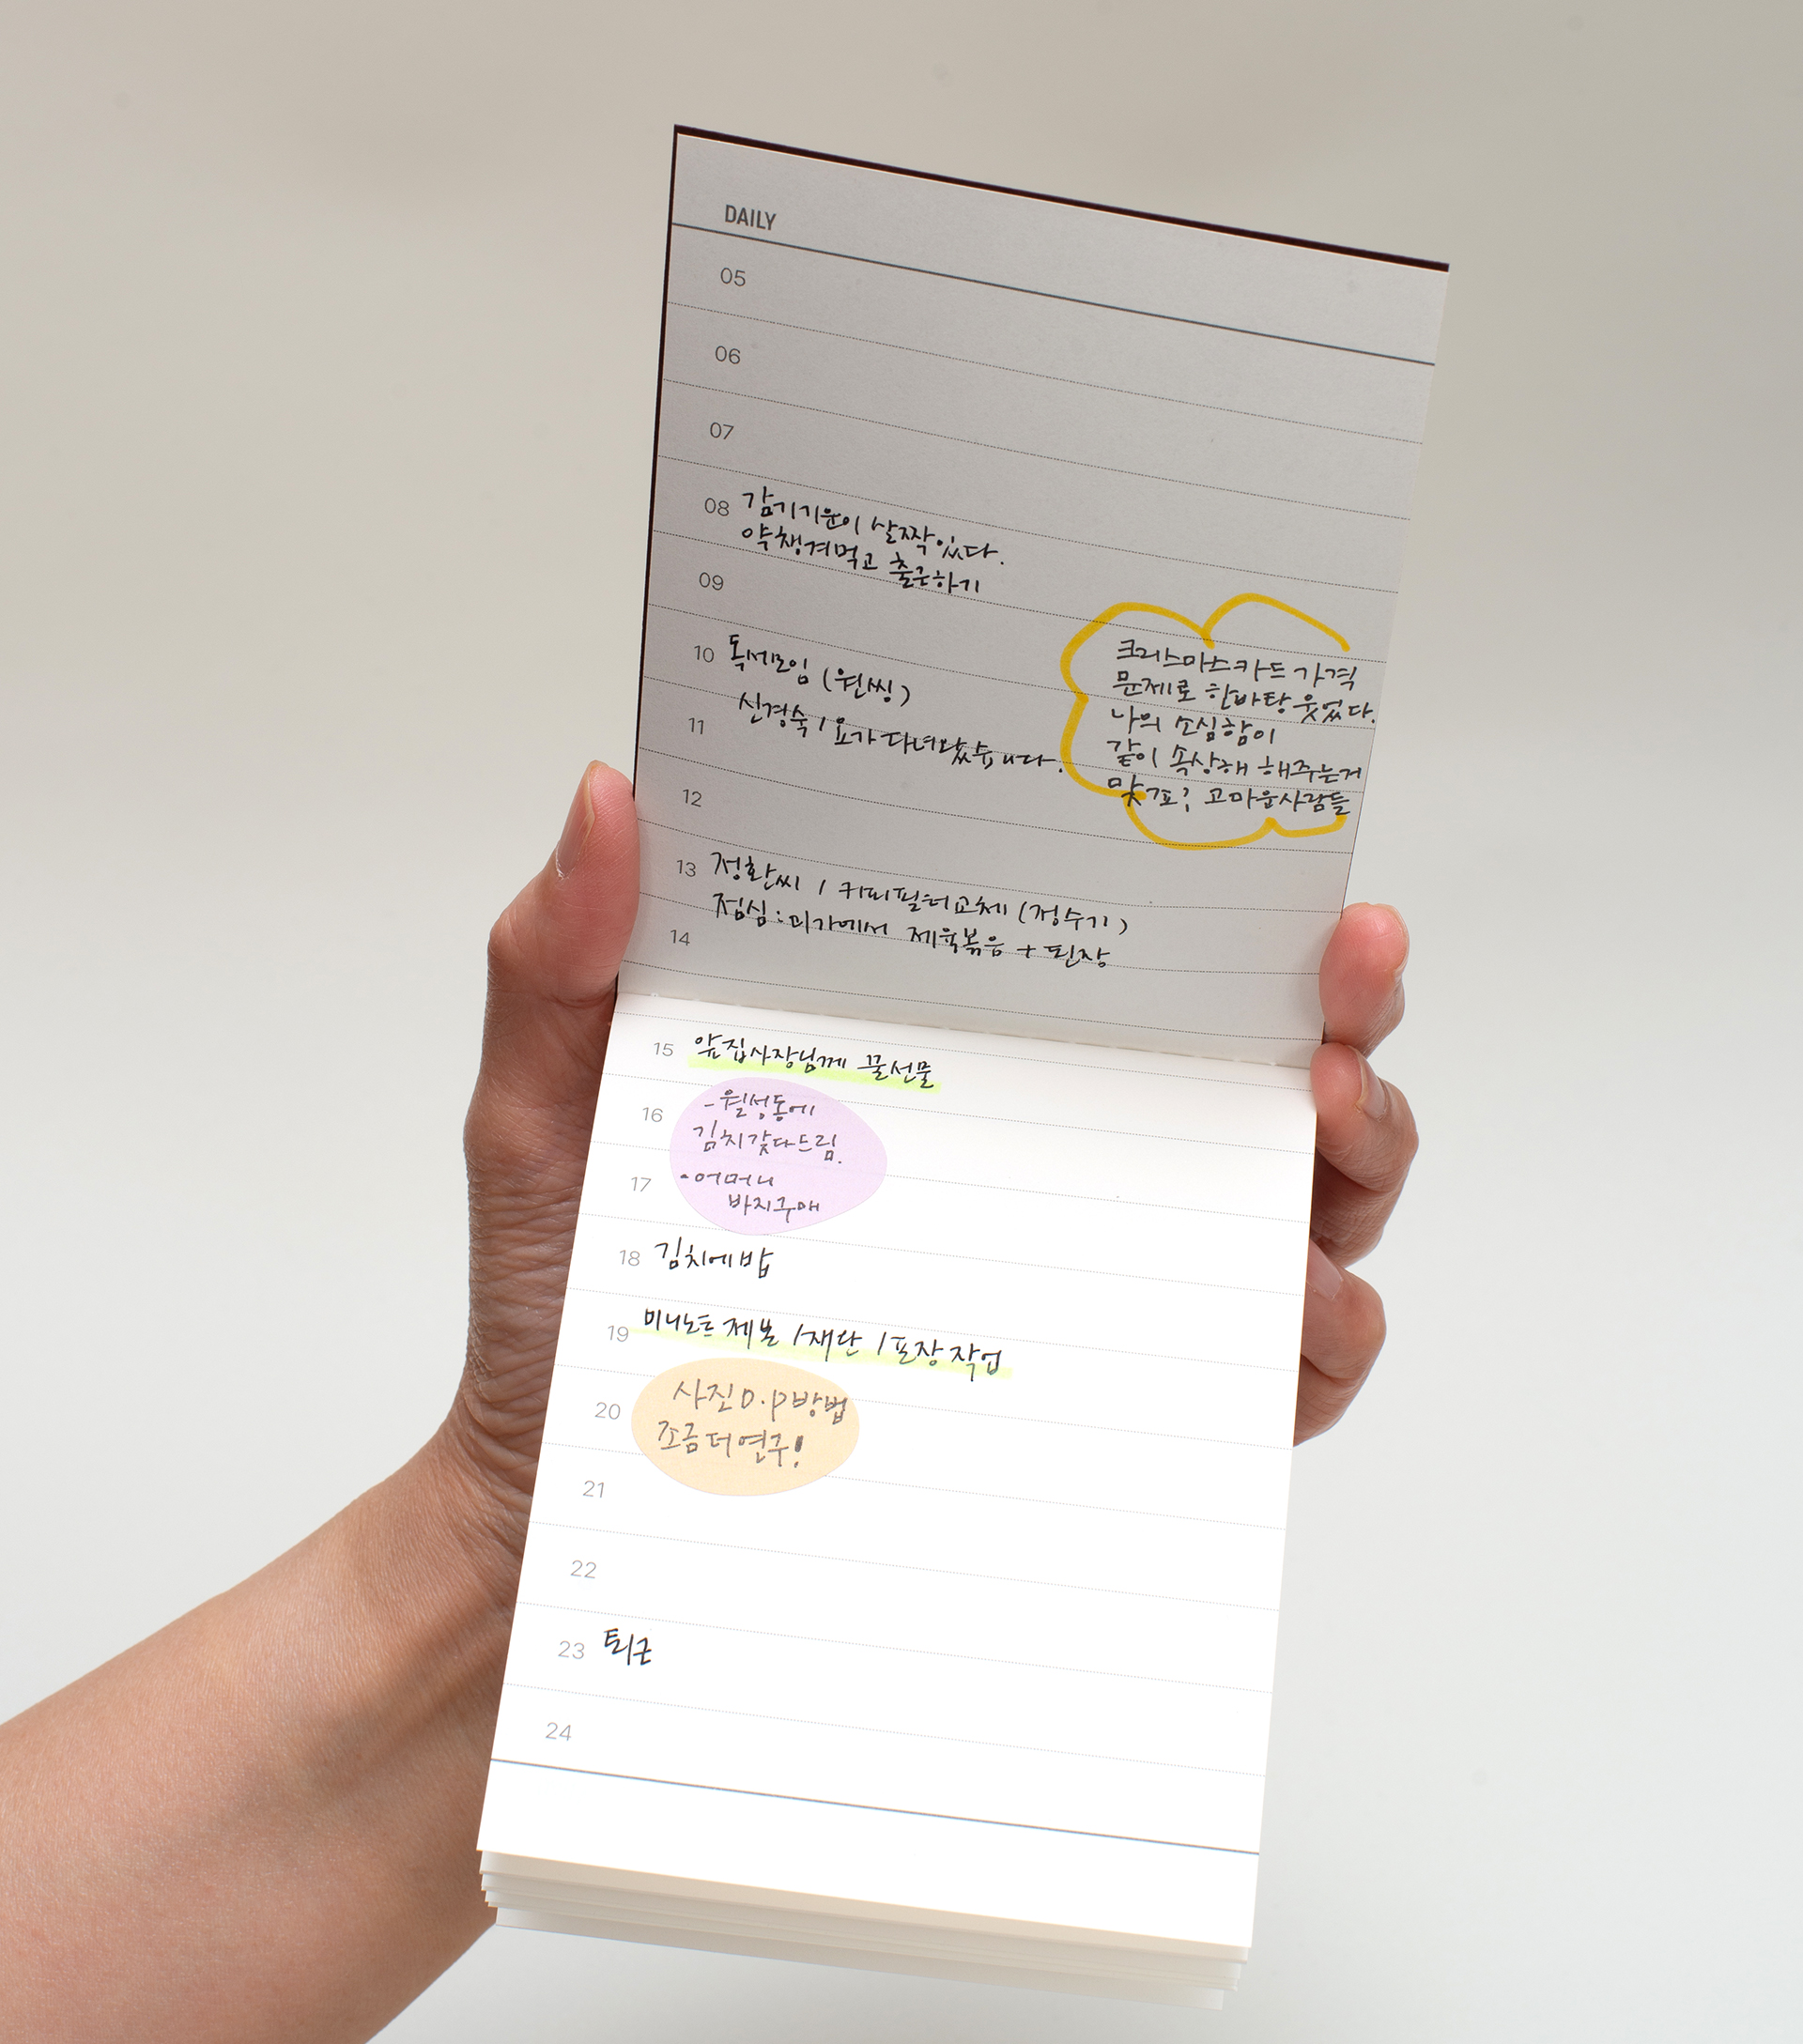 DAILY
05
06
07
08 감기기운이 살짝있다.
약챙겨먹고 출근하기
09
10 독서모임 (원씽)
신경숙 / 요가다녀왔습니다.
11
크리스마스카드 가격
문제로 한바탕 웃었다.
나의 소심함이
같이 속상해 해주는거
맞죠? 고마운사람들
12
13 정환씨 / 커피필터교체 (정수기)
점심: 미가에서 제육볶음 + 된장
14
15 앞집사장님께 꿀선물
16
- 월성동에
김치갖다드림.
17
- 어머니
바지구매
18 김치에밥
19 미니노트 제본 / 재단 / 포장작업
20
사진 D.P방법
조금더연구!
21
22
23 퇴근
24